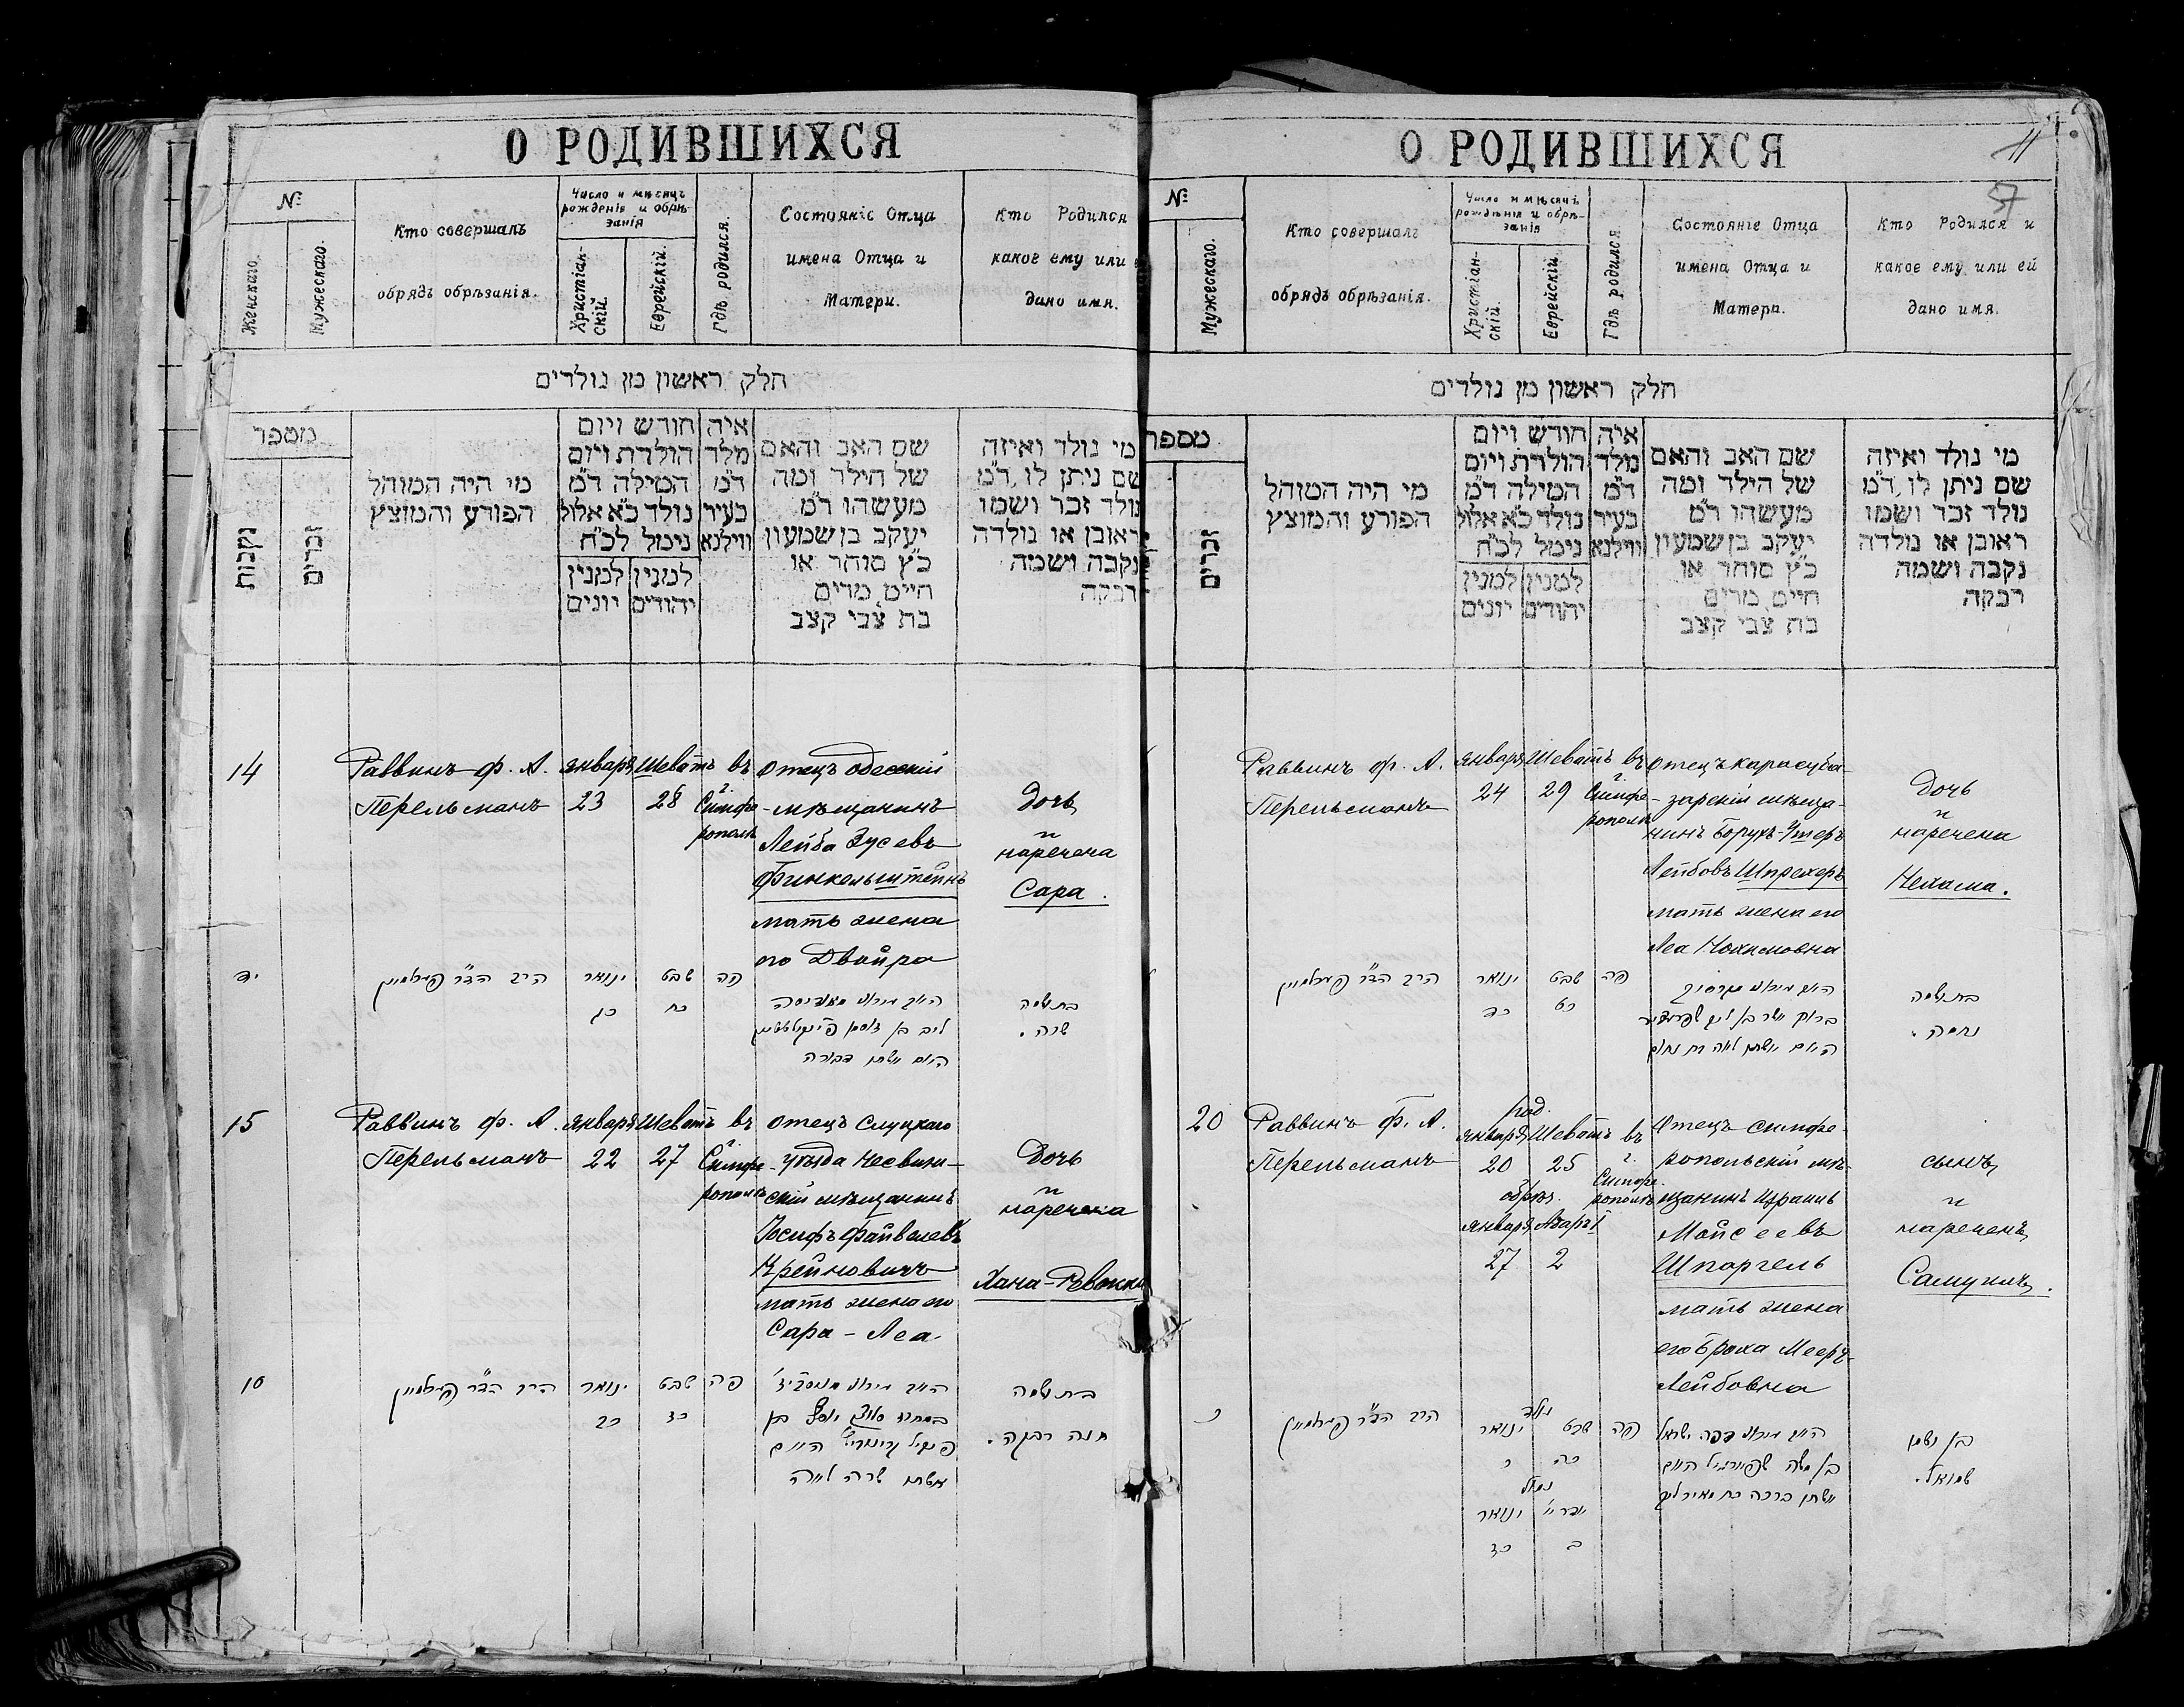 О РОДИВШИХСЯ
№
Женскаго.
Мужескаго.
Кто совершалъ
обрядъ обрѣзанія.
Число и мѣсяцъ
рожденія и обрѣ-
занія
Христіан-
скій.
Еврейскій.
Гдѣ родился.
Состояніе Отца
имена Отца и
Матери.
Кто Родился
какое ему или
дано имя.
חלק ראשון מן נולדים
מספר
נקבות
זכרים
מי היה המוהל
הפורע והמוצץ
חודש ויום
הולדת ויום
המילה ד״מ
נולד כ״א אלול
נימל לכ״ח
למנין יהודים
למנין יונים
איה
מלד
ד״מ
בעיר
ווילנא
שם האב והאם
של הילד ומה
מעשהו ד״מ
יעקב בן שמעון
כ״ץ סוחר או
חייט מרים
בת צבי קצב
מי נולד ואיזה
שם ניתן לו ד״מ
נולד זכר ושמו
ראובן או נולדה
נקבה ושמה
רבקה
14
Раввинъ Ф. А.
Перельманъ
Января
23
Шеватъ
28
въ
г.
Симфе-
рополѣ
Отецъ одесскій
мѣщанинъ
Лейба Зусевъ
Финкельштейнъ
мать жена
его Двойра
Дочь
и
наречена
Сара.
יד
ינואר
כג
שבט
כח
פה
בת ושמה
שרה.
15
Раввинъ Ф. А.
Перельманъ
Января
22
Шеватъ
27
въ
г.
Симфе-
рополѣ
Отецъ Слуцкаго
уѣзда Несвиж-
скій мѣщанинъ
Іосифъ Файвелевъ
Крейновичъ
мать жена его
Сара-Леа
Дочь
и
наречена
Хана-Ревекка
ינואר
כב
שבט
כז
פה
אשתו שרה לאה
בת ושמה
חנה רבקה.
О РОДИВШИХСЯ
11
57
№
Мужескаго.
Кто совершалъ
обрядъ обрѣзанія.
Число и мѣсяцъ
рожденія и обрѣ-
занія
Христіан-
скій.
Еврейскій.
Гдѣ родился.
Состояніе Отца
имена Отца и
Матери.
Кто Родился и
какое ему или ей
дано имя.
חלק ראשון מן נולדים
מספר
זכרים
מי היה המוהל
הפורע והמוצץ
חודש ויום
הולדת ויום
המילה ד״מ
נולד כ״א אלול
נימל לכ״ח
למנין יהודים
למנין יונים
איה
מלד
ד״מ
בעיר
ווילנא
שם האב והאם
של הילד ומה
מעשהו ד״מ
יעקב בן שמעון
כ״ץ סוחר או
חייט מרים
בת צבי קצב
מי נולד ואיזה
שם ניתן לו ד״מ
נולד זכר ושמו
ראובן או נולדה
נקבה ושמה
רבקה
Раввинъ Ф. А.
Перельманъ
Января
24
Шеватъ
29
въ
г.
Симфе-
рополѣ
Отецъ карасуба-
зарскій мѣща-
нинъ Борухъ-Ушеръ
Лейбовъ Шпрехеръ
мать жена его
Леа Нохимовна
Дочь
и
наречена
Нехама.
ינואר
כד
שבט
כט
פה
בת ושמה
נחמה.
20
Раввинъ Ф. А.
Перельманъ
род.
Января
20
Шеватъ
25
обрѣз.
Января
27
Адаръ I
2
въ
г.
Симфе-
рополѣ
Отецъ симфе-
ропольскій мѣ-
щанинъ Израиль
Мойсеевъ
Шпоргель
мать жена
его Броха Мееръ-
Лейбовна
сынъ
и
нареченъ
Самуилъ.
כ
נולד
ינואר
כ
שבט
כה
נימול
ינואר
כז
ב
פה
בן ושמו
שמואל.